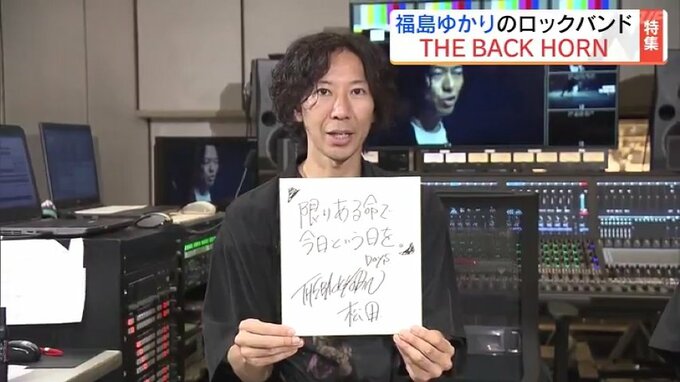 福島ゆかりのロックバンド
THE BACK HORN
特集
限りある命で
今日という日を。
Days
松田